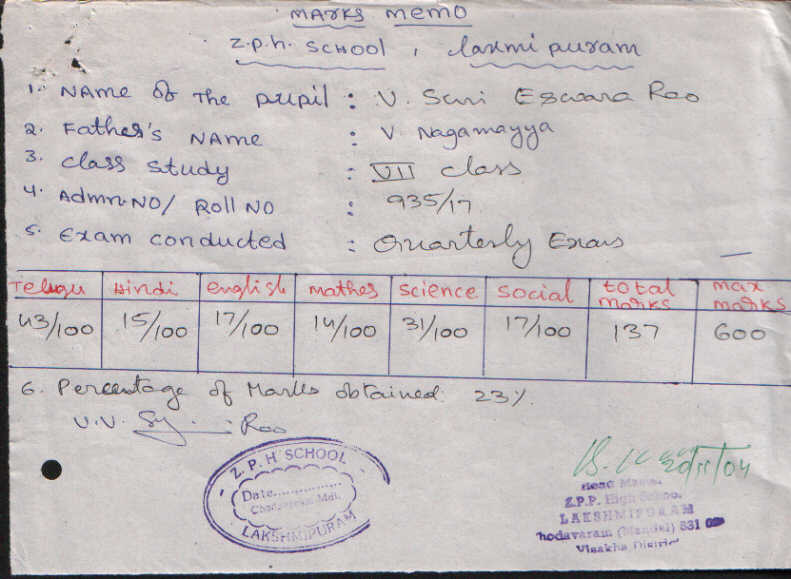 MARKS MEMO
Z.P.H. SCHOOL, Laxmipuram
1. NAme of The pupil : V. Suri Eswara Rao
2. Father's NAme : V Nagamayya
3. Class Study : VII class
4. Admn.NO/ Roll NO : 935/17
5. Exam conducted : Quarterly Exams
Telugu Hindi english mathes science social total marks max marks
43/100 15/100 17/100 14/100 31/100 17/100 137 600
6. Percentage of Marks obtained: 23%.
V.V. Rao
Z.P.H SCHOOL
Date..............
LAKSHMIPURAM
Head
Z.P.P. High School
LAKSHMIPURAM
hodavaram (Mandal) 531
Visakha District